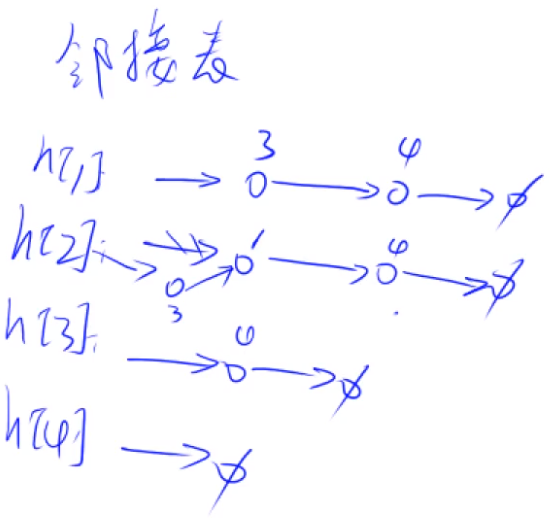 邻接表
h[1] → 3 → 4 → ∅
h[2]: → 3 → 1 → 4 → ∅
h[3]: → 4 → ∅
h[4] → ∅